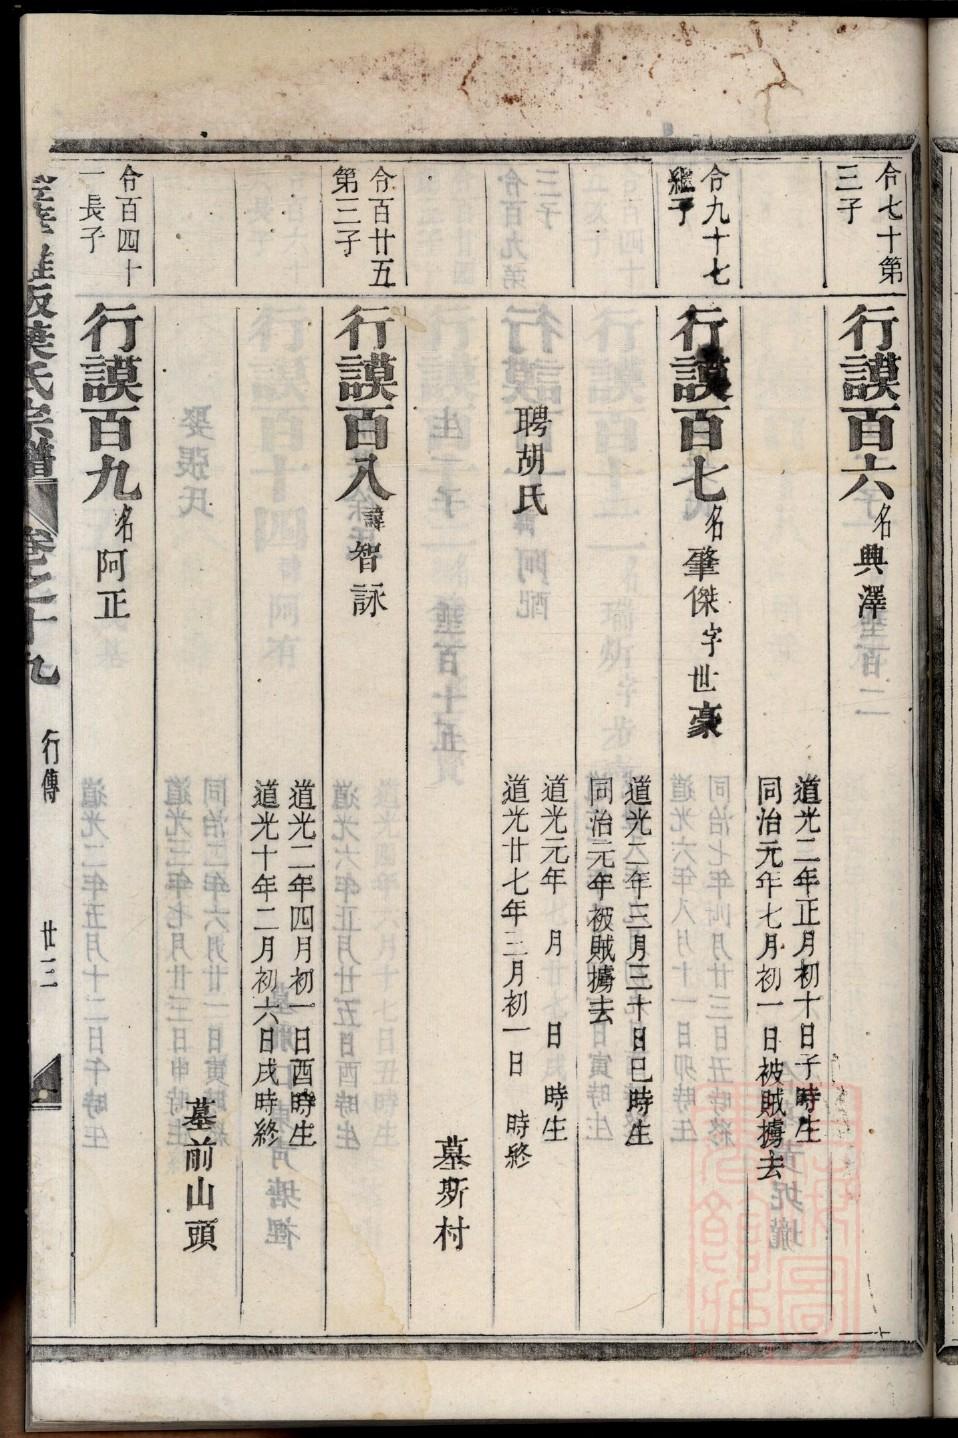 令七十第
三子
行謨百六名興澤
道光二年正月初十日子時生
同治元年七月初一日被賊擄去
令九十七
繼子
行謨百七名肇傑字世豪
道光二年三月三十日巳時生
同治元年被賊擄去
聘胡氏
道光元年　月　日　時生
道光廿七年三月初一日　時終
墓斯村
令百廿五
第三子
行謨百八諱智詠
道光二年四月初一日酉時生
道光十年二月初六日戌時終
墓前山頭
令百四十
一長子
行謨百九名阿正
坂葉氏宗譜
卷之十九
行傳
廿三